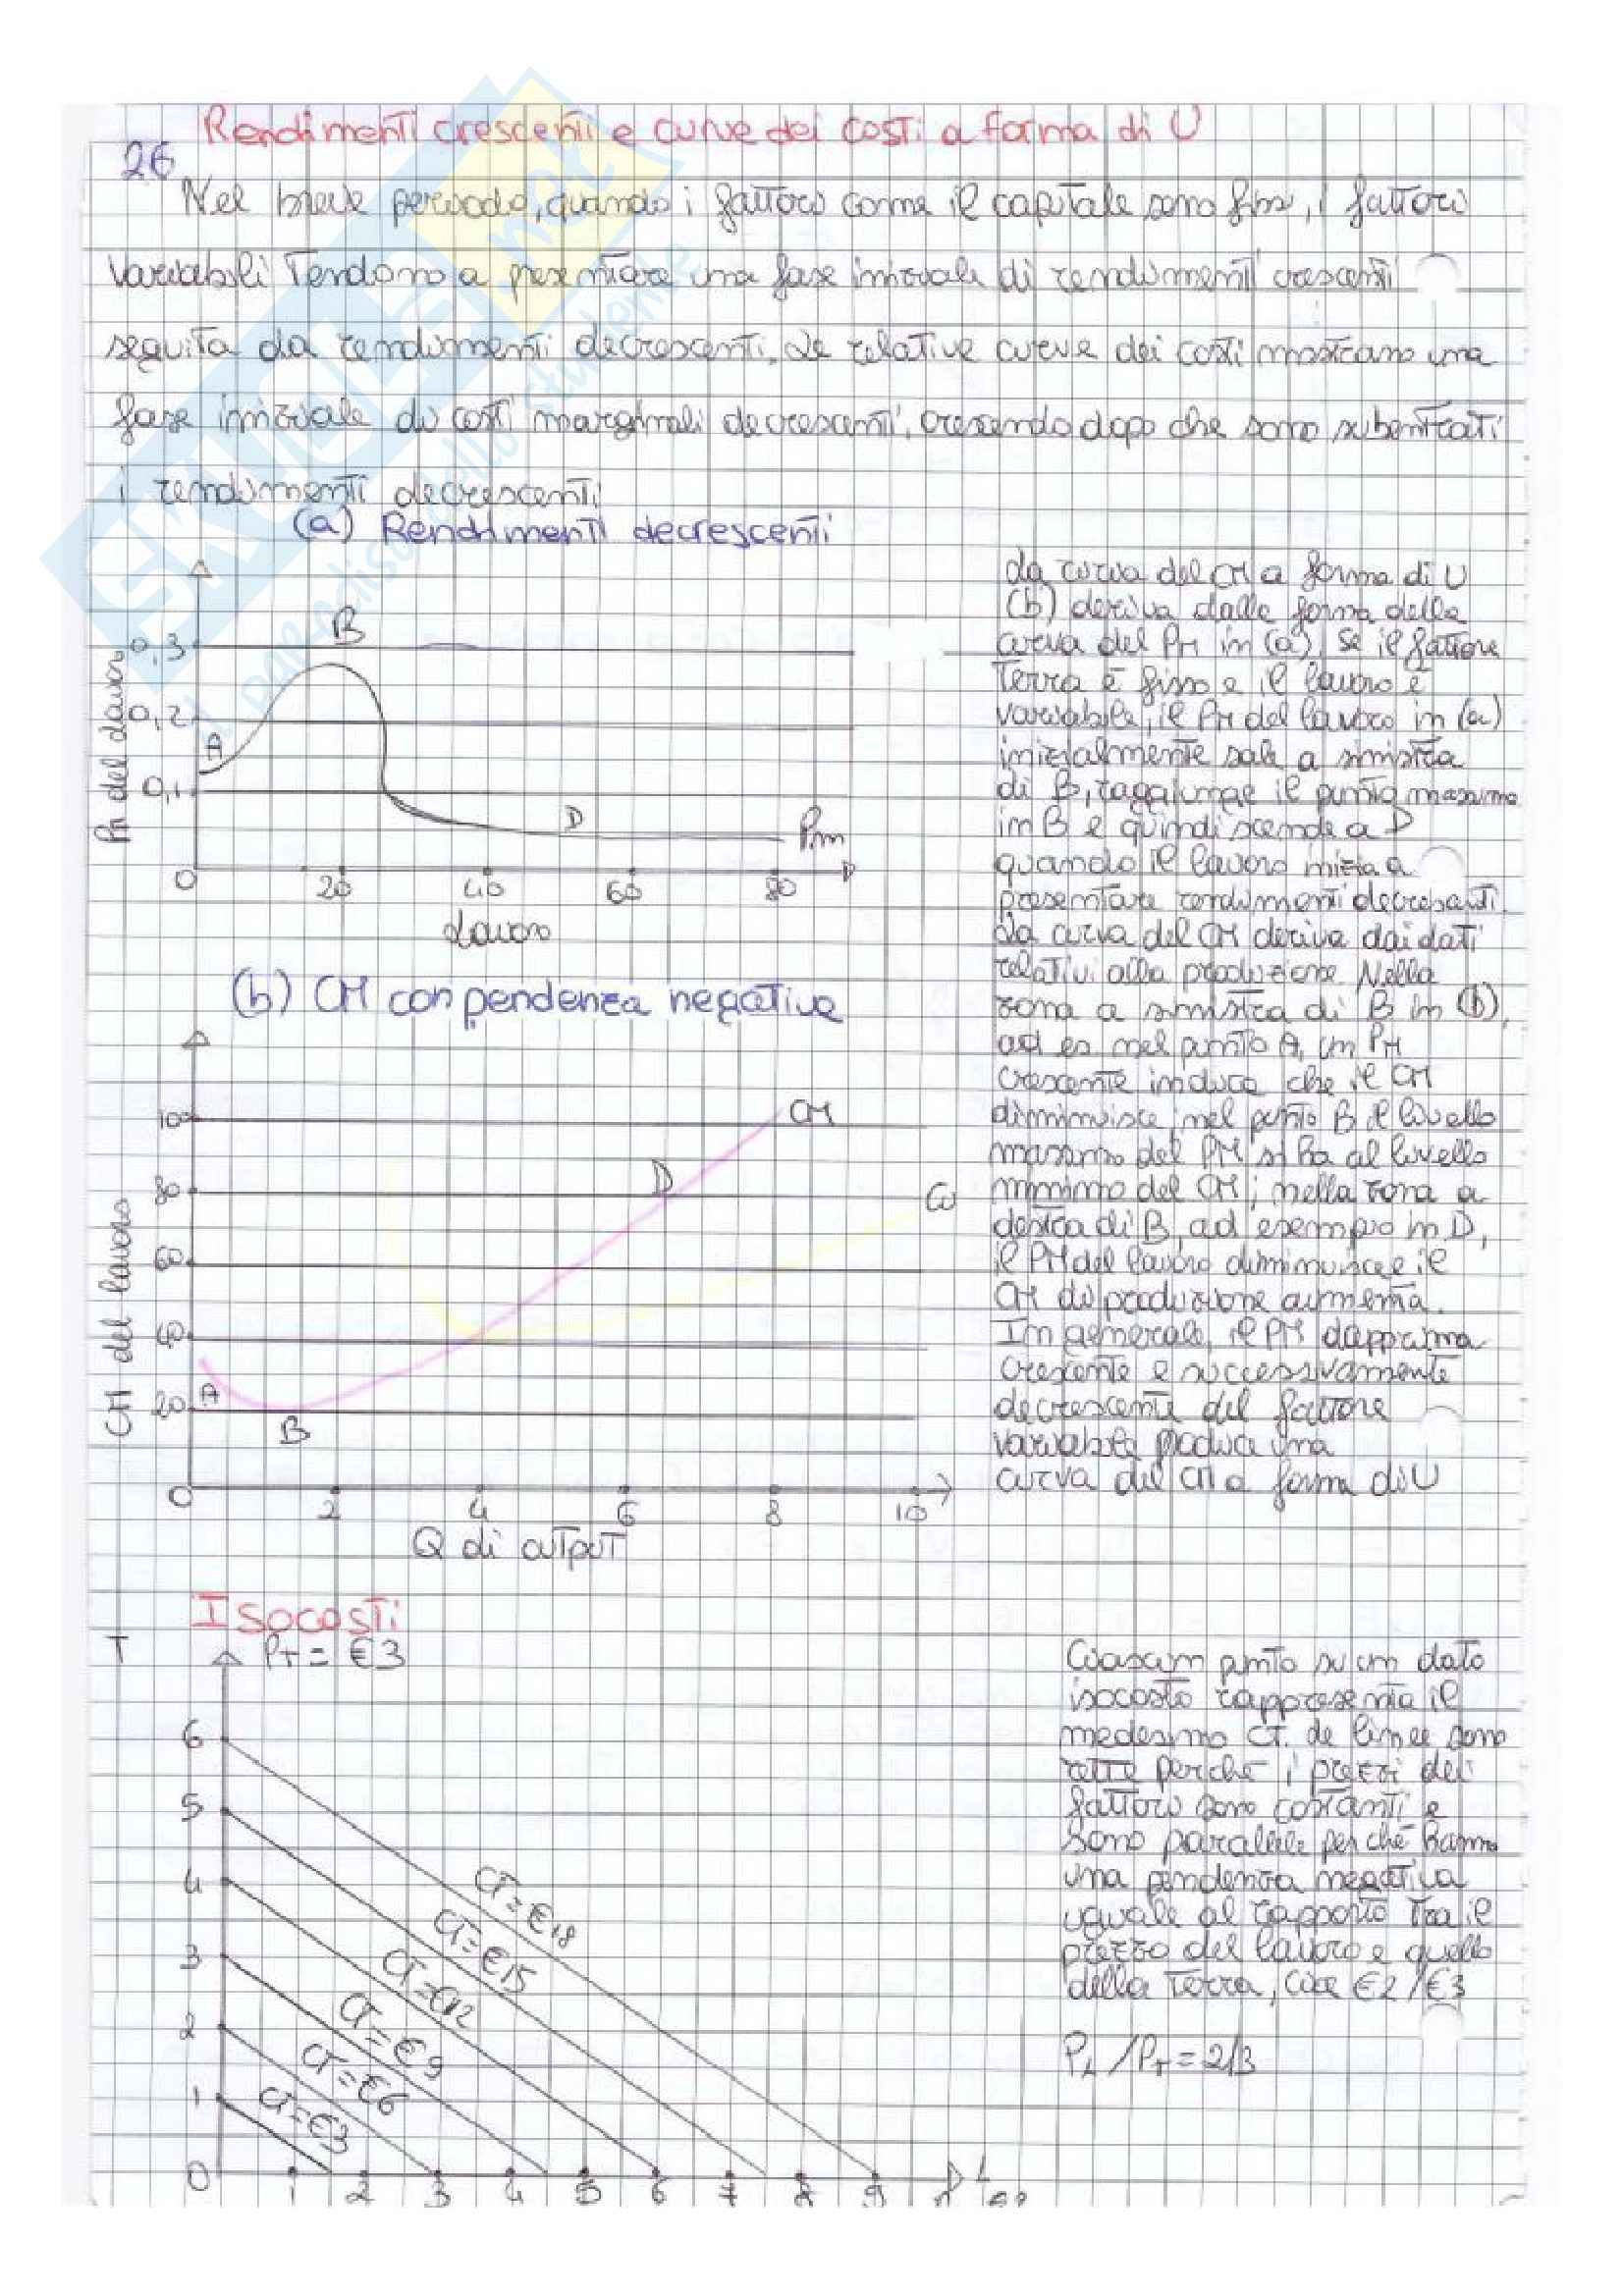 Rendimenti crescenti e curve dei costi a forma di U
26
Nel breve periodo, quando i fattori come il capitale sono fissi, i fattori
variabili tendono a presentare una fase iniziale di rendimenti crescenti
seguita da rendimenti decrescenti. Le relative curve dei costi mostrano una
fase iniziale di costi marginali decrescenti, crescendo dopo che sono subentrati
i rendimenti decrescenti
(a) Rendimenti decrescenti
PM del lavoro
0,3
0,2
0,1
0
A
B
D
Pm
20 40 60 80
Lavoro
La curva del CM a forma di U
(b) deriva dalle forma della
curva del PM in (a). Se il fattore
terra è fisso e il lavoro è
variabile, il PM del lavoro in (a)
inizialmente sale a sinistra
di B, raggiunge il punto massimo
in B e quindi scende a D
quando il lavoro inizia a
presentare rendimenti decrescenti.
La curva del CM deriva dai dati
relativi alla produzione. Nella
zona a sinistra di B in (b),
ad es. nel punto A, un PM
crescente indica che il CM
diminuisce; nel punto B il livello
massimo del PM si ha al livello
minimo del CM; nella zona a
destra di B, ad esempio in D,
il PM del lavoro diminuisce e il
CM di produzione aumenta.
In generale, il PM dapprima
crescente e successivamente
decrescente del fattore
variabile produce una
curva del CM a forma di U
(b) CM con pendenza negativa
CM del lavoro
100
80
60
40
20
0
A
B
D
CM
2 4 6 8 10
Q di output
Isocosti
T
PT = €3
6
5
4
3
2
1
0
CT=€18
CT=€15
CT=€12
CT=€9
CT=€6
CT=€3
1 2 3 4 5 6 7 8 9
L
Ciascun punto su un dato
isocosto rappresenta il
medesimo CT. Le linee sono
rette perché i prezzi dei
fattori sono costanti e
sono parallele perché hanno
una pendenza negativa
uguale al rapporto tra il
prezzo del lavoro e quello
della terra, cioè €2/€3
PL/PT = 2/3
SKUOLA.net
il paradiso dello studente